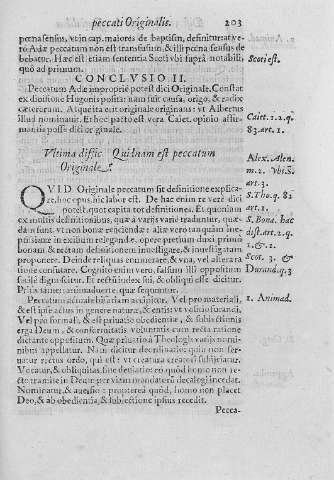 peccati Originalis. 203
pœnæ sensus, vt in cap. maiores de baptism, definitur: at ve-
ro Adæ peccatum non est transfusum, & illi pœna sensus de
bebatur. Hæc est etiam sententia Scoti vbi supra notabili
quo ad primum.
Scoti est.
CONCLVSIO II.
Peccatum Adæ impropriè potest dici Originale. Constat
ex dictione Hugonis posita: nam fuit causa, origo, & radix
cæterorum. Atque ita erit originale originans: vt Albertus
illud nominauit. Et hoc pacto est vera Caiet. opinio affir-
mantis posse dici originale.
Caiet. 1.2. q.
83. art. 1.
Vltima diffic Quid nam est peccatum
Originale.
Alex. Alen.
m. 2. Vbi S.
art. 3.
S. Tho. q. 82
art. 1
S. Bona. hac
dist. art. 2. q.
1. & 2.
Scot. 3. &
Durand. q. 3
QVID Originale peccatum sit definitione explica-
re, hoc opus, hic labor est. De hac enim re vere dici
potest, quot capita tot definitiones. Et quoniam
ex multis definitionibus, quæ à varijs variè traduntur, quæ-
dam sunt veri non bonæ reprehendi: aliæ vero tanquam ine-
ptissimæ in exilium relegandæ, operæ pretium duxi primò
bonam, & rectam definitionem inuestigare, & inuestigatam
proponere. Deinde reliquas enumerare, & vna, vel altera ra
tione confutare. Cognito enim vero, falsum illi oppositum
facilè dignoscitur. Et rectum index sui, & obliqui esse dicitur.
Prius tamen animaduertе quæ sequuntur.
1. Animad.
Peccatum actuale bifariam accipitur. Vel pro materiali,
& est ipse actus in genere naturæ, & entis: vt velle furari.
Vel pro formali, & est priuatio obedientiæ, & subiectionis
erga Deum, & conformitatis voluntatis cum recta ratione
dictante oppositum. Quæ priuatio à Theologis varijs nomi-
nibus appellatur. Nam dicitur deordinatio: quia non ser-
uatur rectus ordo, qui est: vt creatura creatori subijciatur.
Vocatur, & obliquitas, siue deuiatio: eo quòd homo non re-
cte tramite in Deum per viam mandatorum decalogi incedat.
Nominatur, & auersio: propterea quòd, homo non placet
Deo, & ab obedientia, & subiectione ipsius recedit.
Pecca-